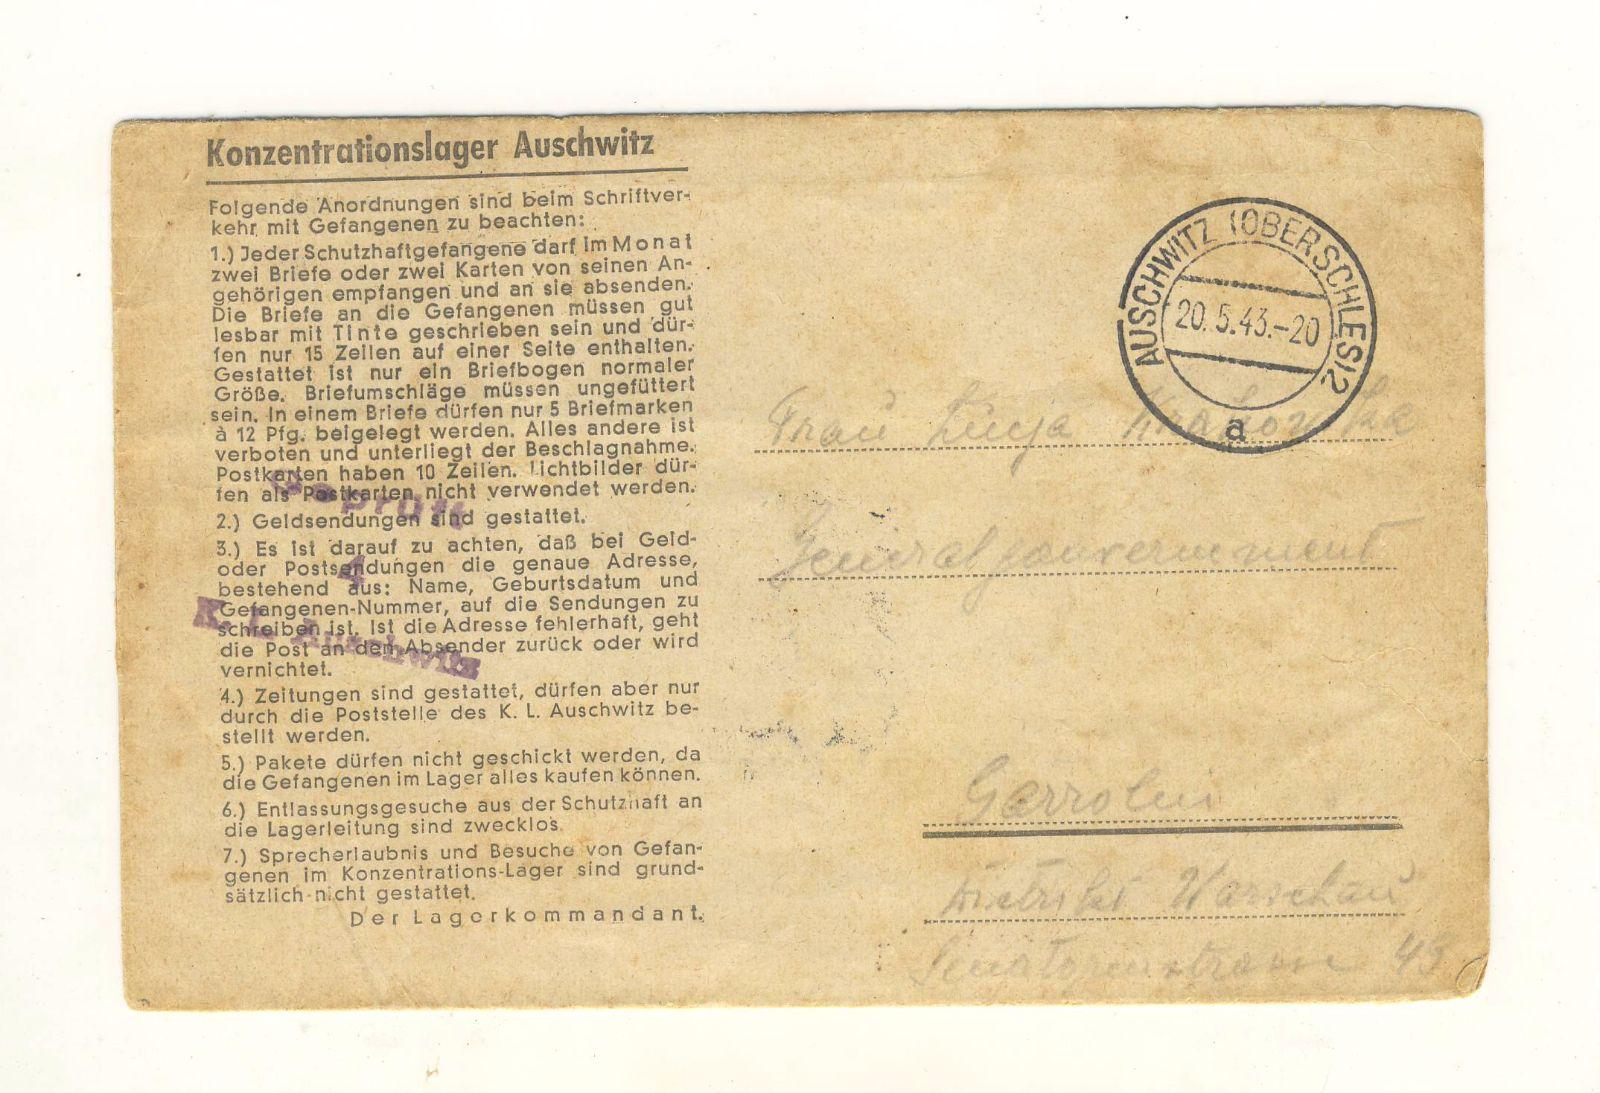 Konzentrationslager Auschwitz
Folgende Anordnungen sind beim Schriftver-
kehr mit Gefangenen zu beachten:
1.) Jeder Schutzhaftgefangene darf im Monat
zwei Briefe oder zwei Karten von seinen An-
gehörigen empfangen und an sie absenden.
Die Briefe an die Gefangenen müssen gut
lesbar mit Tinte geschrieben sein und dür-
fen nur 15 Zeilen auf einer Seite enthalten.
Gestattet ist nur ein Briefbogen normaler
Größe. Briefumschläge müssen ungefüttert
sein. In einem Briefe dürfen nur 5 Briefmarken
à 12 Pfg. beigelegt werden. Alles andere ist
verboten und unterliegt der Beschlagnahme.
Postkarten haben 10 Zeilen. Lichtbilder dür-
fen als Postkarten nicht verwendet werden.
2.) Geldsendungen sind gestattet.
3.) Es ist darauf zu achten, daß bei Geld-
oder Postsendungen die genaue Adresse,
bestehend aus: Name, Geburtsdatum und
Gefangenen-Nummer, auf die Sendungen zu
schreiben ist. Ist die Adresse fehlerhaft, geht
die Post an den Absender zurück oder wird
vernichtet.
4.) Zeitungen sind gestattet, dürfen aber nur
durch die Poststelle des K. L. Auschwitz be-
stellt werden.
5.) Pakete dürfen nicht geschickt werden, da
die Gefangenen im Lager alles kaufen können.
6.) Entlassungsgesuche aus der Schutzhaft an
die Lagerleitung sind zwecklos.
7.) Sprecherlaubnis und Besuche von Gefan-
genen im Konzentrations-Lager sind grund-
sätzlich nicht gestattet.
Der Lagerkommandant.
Geprüft
4
K. L. Auschwitz
AUSCHWITZ (OBERSCHLES) 2
20.5.43.-20
a
Frau
Generalgouvernement
Garwolin
Distrikt Warschau